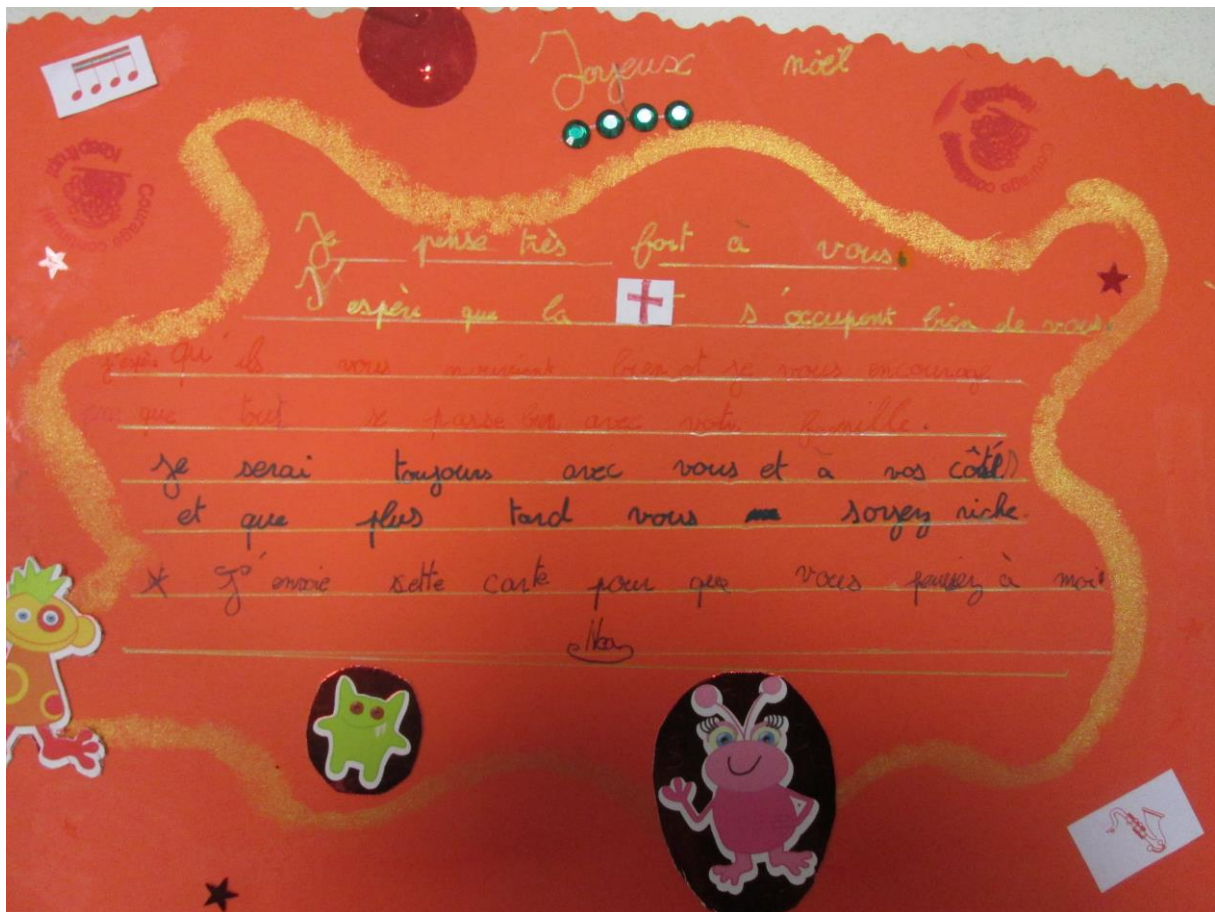 Joyeux noël
Keep it up!
Courage continue!
Courage continue!
Keep it up!
Je pense très fort à vous.
J'espère que la s'occupent bien de vous.
j'espère qu'ils vous bien et je vous encourage
que tout se passe bien avec votre famille.
je serai toujours avec vous et à vos côtés
et que plus tard vous soyez riche.
* J'envoie sette carte pour que vous pensez à moi
Noa